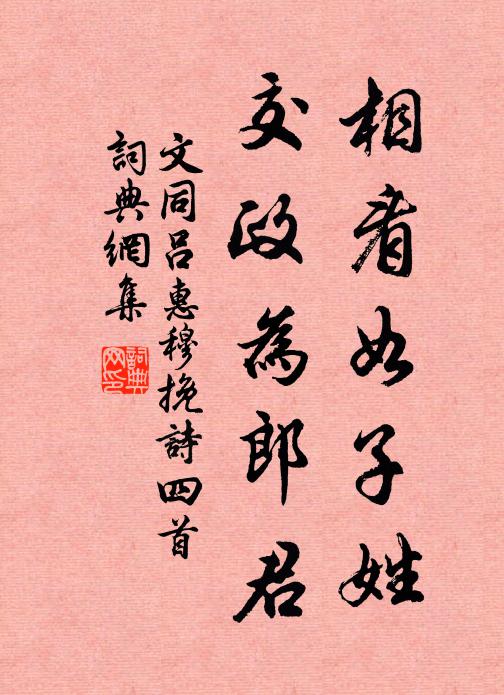 相看如子姓
交政為郎君
文同呂惠穆挽詩四首
詞典網集
詞典網印